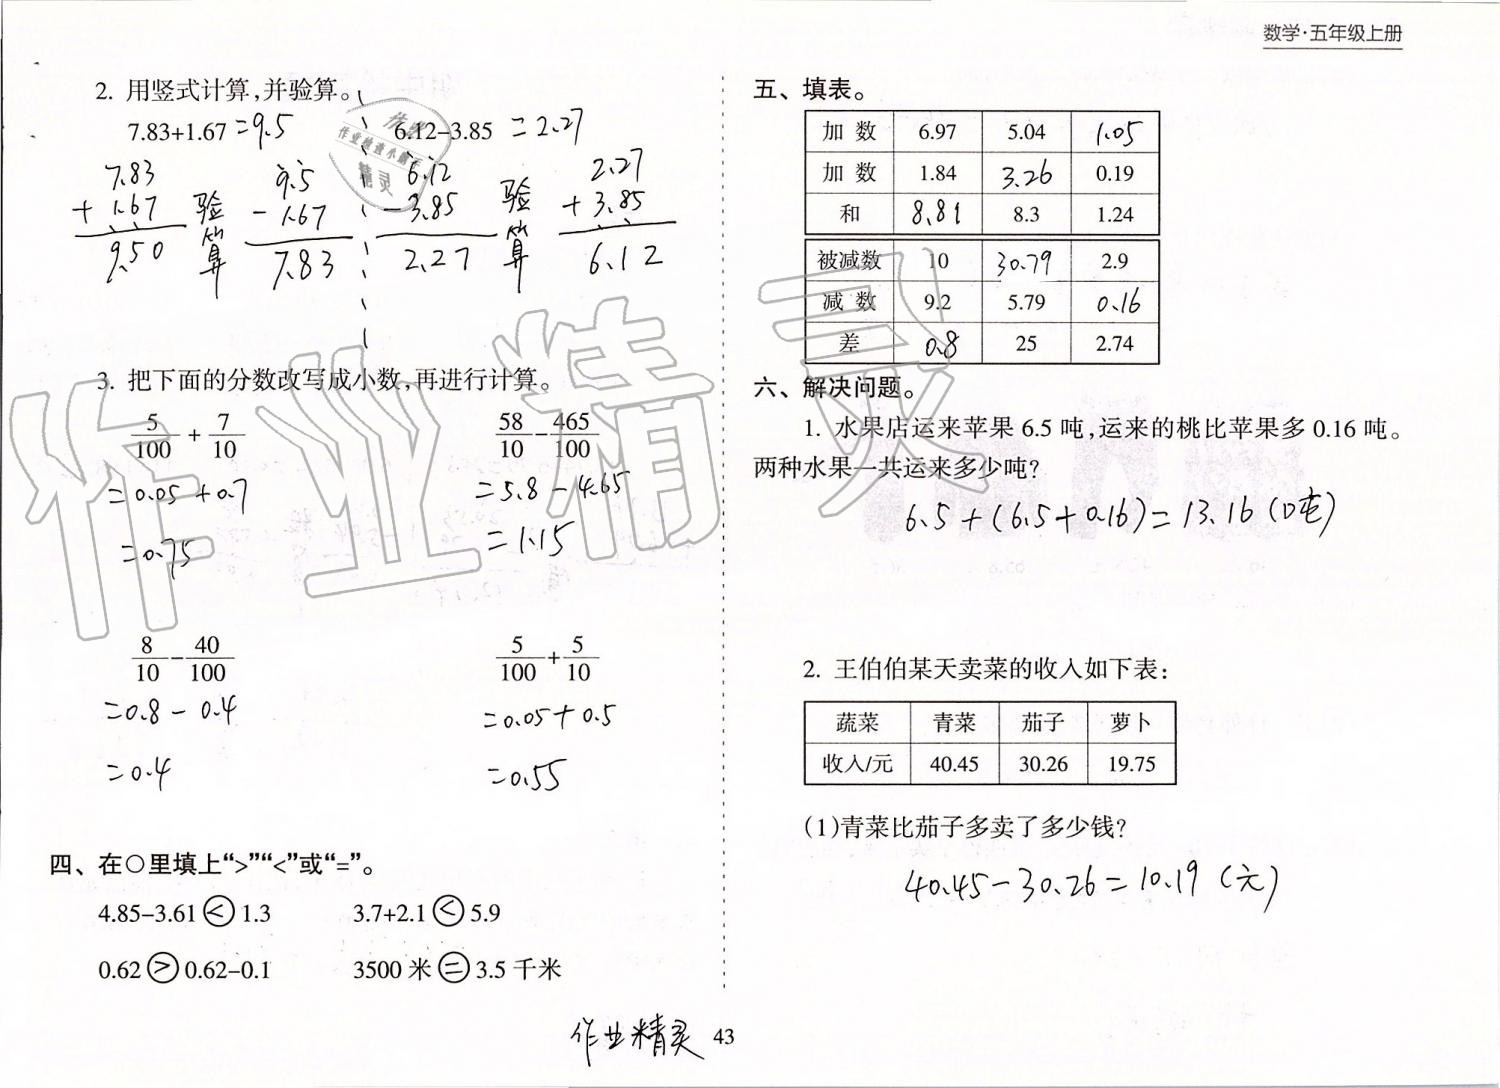 数学·五年级上册
2. 用竖式计算,并验算。
7.83+1.67 =9.5 6.12-3.85 =2.27
7.83 9.5 6.12 2.27
+ 1.67 验算 - 1.67 - 3.85 验算 + 3.85
9.50 7.83 2.27 6.12
3. 把下面的分数改写成小数,再进行计算。
5/100 + 7/10 58/10 - 465/100
=0.05+0.7 =5.8-4.65
=0.75 =1.15
8/10 - 40/100 5/100 + 5/10
=0.8-0.4 =0.05+0.5
=0.4 =0.55
四、在○里填上“>”“<”或“=”。
4.85-3.61 < 1.3 3.7+2.1 < 5.9
0.62 > 0.62-0.1 3500 米 = 3.5 千米
五、填表。
加 数 6.97 5.04 1.05
加 数 1.84 3.26 0.19
和 8.81 8.3 1.24
被减数 10 30.79 2.9
减 数 9.2 5.79 0.16
差 0.8 25 2.74
六、解决问题。
1. 水果店运来苹果 6.5 吨,运来的桃比苹果多 0.16 吨。
两种水果一共运来多少吨?
6.5+(6.5+0.16)=13.16(吨)
2. 王伯伯某天卖菜的收入如下表:
蔬菜 青菜 茄子 萝卜
收入/元 40.45 30.26 19.75
(1)青菜比茄子多卖了多少钱?
40.45-30.26=10.19(元)
作业精灵
43
作业精灵